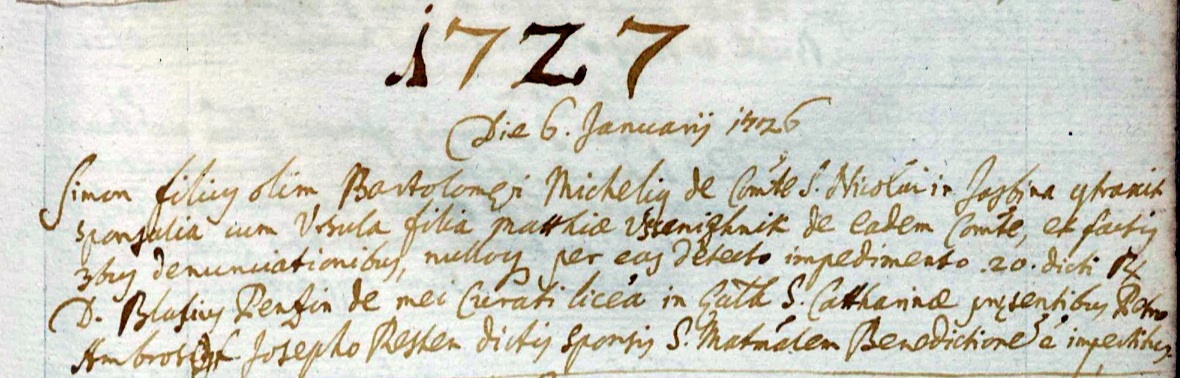 1727
Die 6. Januarij 1726
Simon filius olim Bartolomęi Michelig de Comte S. Nicolai in Jassbina contraxit
sponsalia cum Ursula filia Matthiæ Ussenighnik de eadem Comte, et factis
3bus denunciationibus, nulloq per eas detecto impedimento 20. dicti
D. Blasius Penzin de mei Curati licea in S. Catharinæ pręsentibus Petro
Josepho Resten dictis sponsis S. Matrialem Benedictione e impertitus